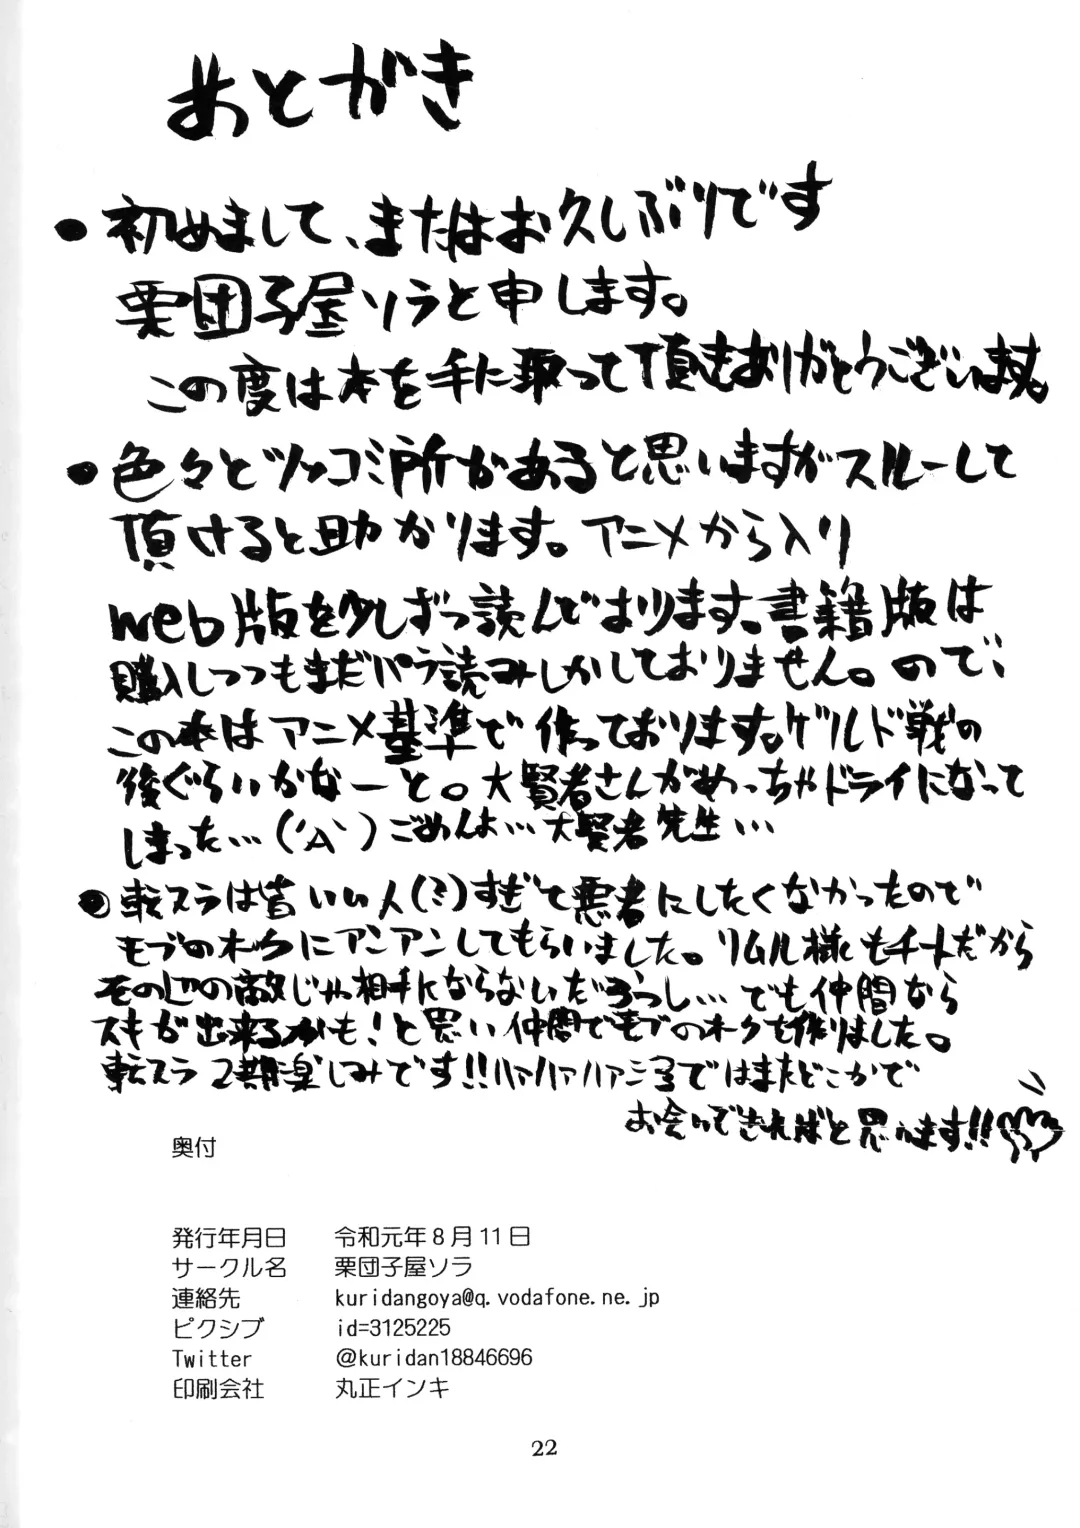 あとがき
●初めまして、またはお久しぶりです
栗団子屋ソラと申します。
この度は本を手に取って頂きありがとうございます。
●色々とツッコミ所があると思いますがスルーして
頂けると助かります。アニメから入り
web版を少しずつ読んでおります。書籍版は
購入しつつもまだパラ読みしかしておりません。ので、
この本はアニメ基準で作っております。ゲルド戦の
後ぐらいかなーと。大賢者さんがめっちゃドライになって
しまった…(´A`)ごめんよ…大賢者先生…
●転スラは皆いい人(?)すぎて悪者にしたくなかったので
モブのオークにアンアンしてもらいました。リムル様もチートだから
その辺の敵じゃ相手にならないだろうし…でも仲間なら
スキが出来るかも!と思い仲間でモブのオークを作りました。
転スラ2期楽しみです!!ハァハァハァ ではまたどこかで
お会いできればと思います!!
奥付
発行年月日 令和元年8月11日
サークル名 栗団子屋ソラ
連絡先 kuridangoya@q.vodafone.ne.jp
ピクシブ id=3125225
Twitter @kuridan18846696
印刷会社 丸正インキ
22